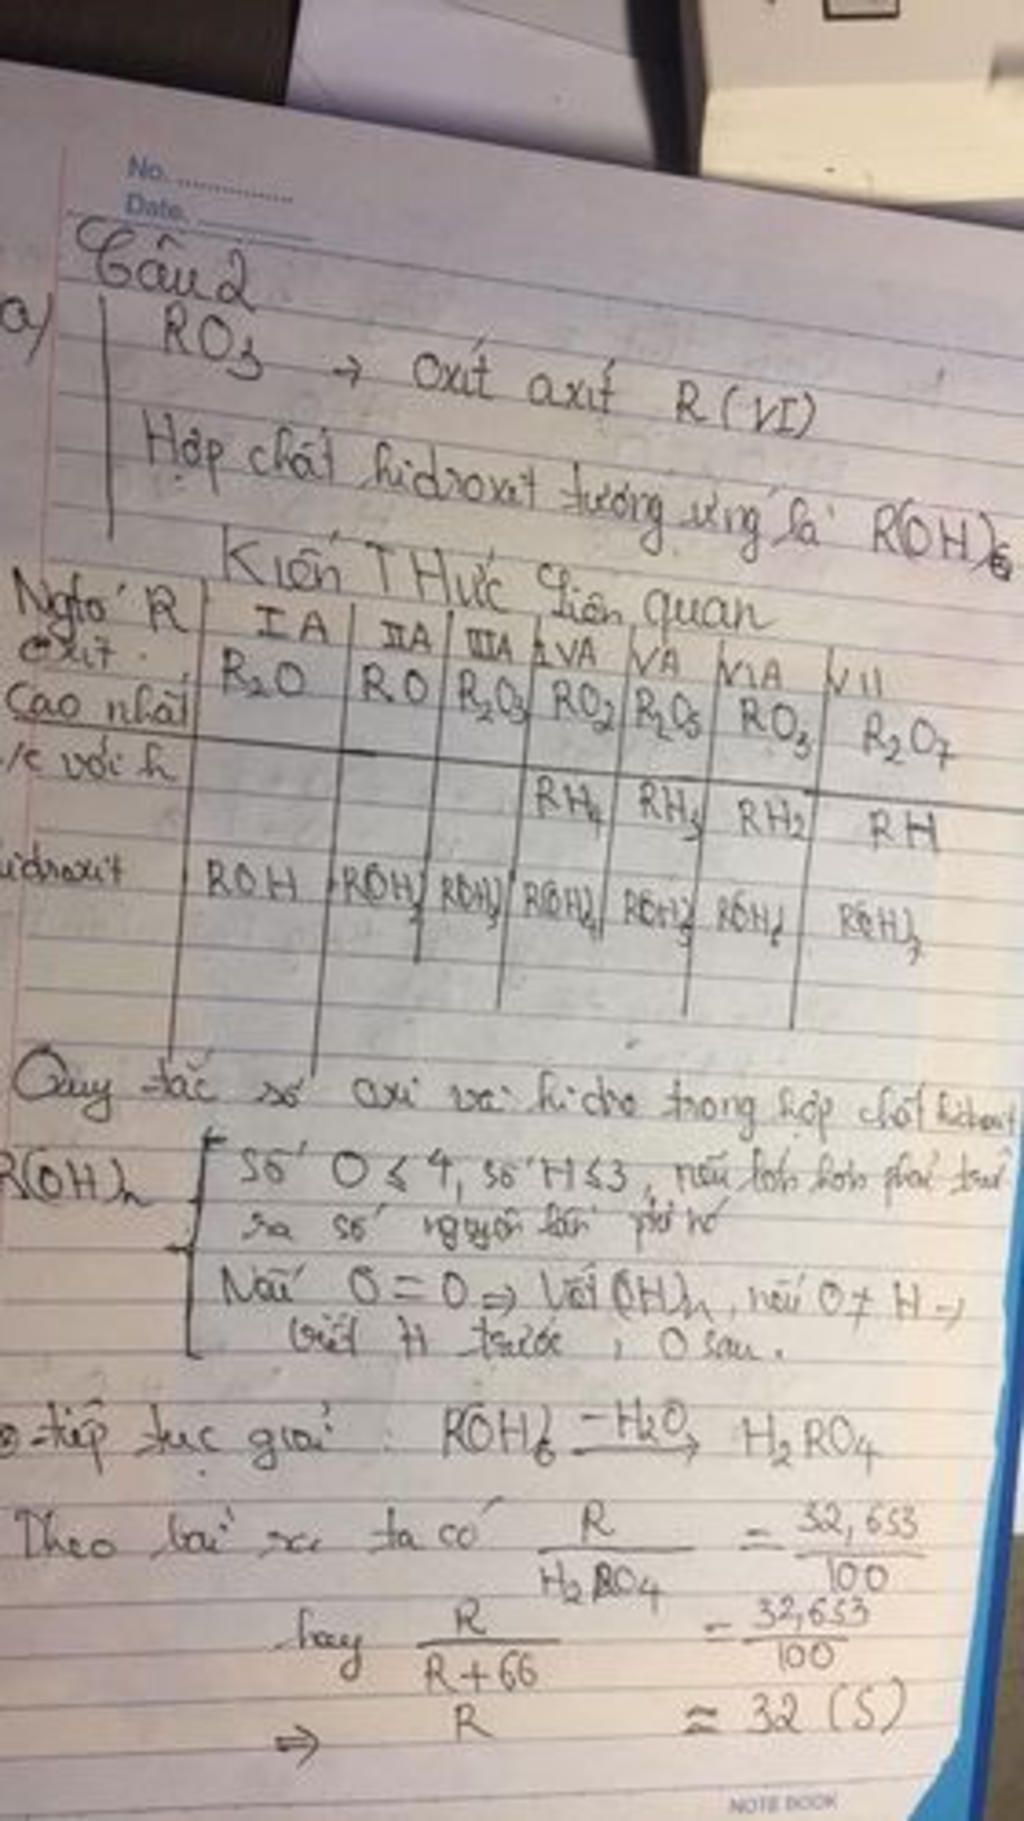 No.
Date.
Câu 2
a) RO₃ → Oxit axit R (VI)
Hợp chất hidroxit tương ứng là R(OH)₆
Kiến THức Liên quan
Ngtố R IA IIA IIIA IVA VA VIA VII
Oxit cao nhất R₂O RO R₂O₃ RO₂ R₂O₅ RO₃ R₂O₇
/c với h RH₄ RH₃ RH₂ RH
hidroxit ROH R(OH)₂ R(OH)₃ R(OH)₄ R(OH)₅ R(OH)₆ R(OH)₇
Quy tắc số oxi và hidro trong hợp chất hidroxit
R(OH)ₙ Số O ≤ 4, số H ≤ 3, nếu lớn hơn phải trừ
ra số nguyên lần
Nếu O = O ⇒ Viết (OH)ₙ, nếu O ≠ H →
viết H trước, O sau.
tiếp tục giải: R(OH)₆ –H₂O→ H₂RO₄
Theo bài ra ta có R / H₂RO₄ = 32,653 / 100
hay R / R+66 = 32,653 / 100
⇒ R ≈ 32 (S)
NOTE BOOK